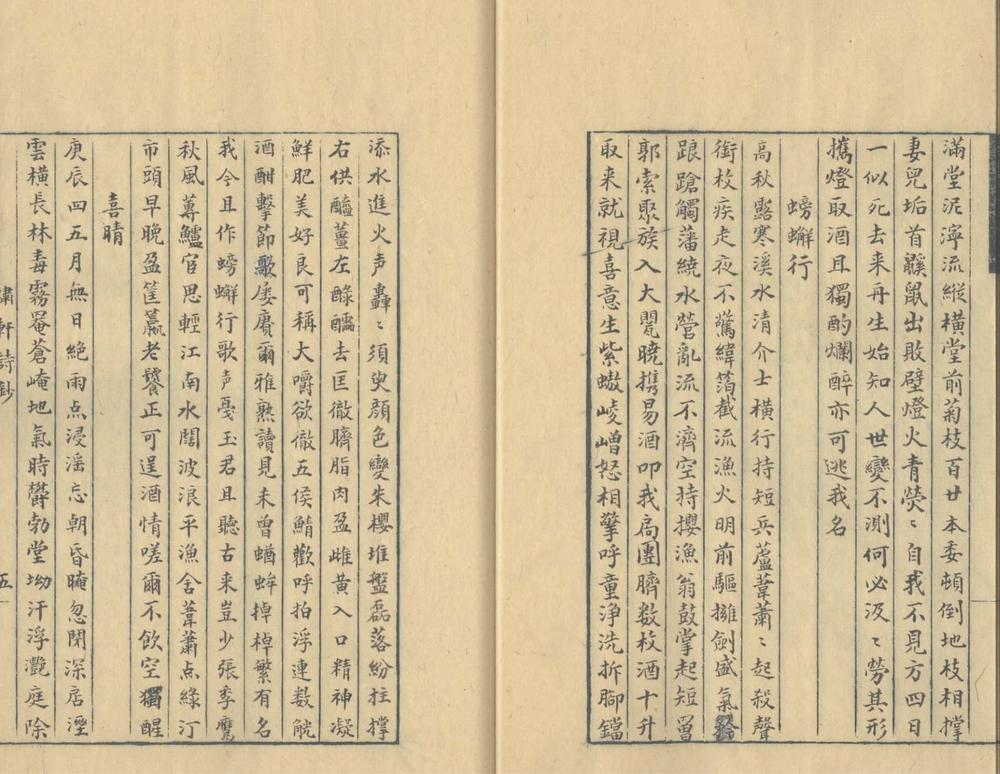 滿堂泥濘流縱橫堂前菊枝百廿本委頓倒地枝相撐
妻兒垢首鼷鼠出敗壁燈火青熒〻自我不見方四日
一似死去来再生始知人世變不測何必汲〻勞其形
攜燈取酒且獨酌爛醉亦可逃我名
螃蠏行
高秋露寒溪水清介士橫行持短兵蘆葦蕭〻起殺聲
銜枚疾走夜不驚緯蕭截流漁火明前驅擁劍盛氣矜
踉蹌觸藩繞水營亂流不濟空持攖漁翁鼓掌起短罾
郭索聚族入大甖曉攜易酒叩我扃團臍数枚酒十升
取来就視喜意生紫螯崚嶒怒相擎呼童淨洗拆腳鐺
添水進火声轟〻須臾顔色變朱櫻堆盤磊落紛拄撐
右供醯薑左醁醽去匡徹臍脂肉盈雌黄入口精神凝
鮮肥美好良可稱大嚼欲徹五侯鯖歡呼拍浮連数觥
酒酣擊節歌屡賡爾雅熟讀見未曾蝤蛑掉棹繁有名
我今且作螃蠏行歌声戛玉君且聽古来豈少張季鷹
秋風蓴鱸官思輕江南水闊波浪平漁舍葦蕭点綠汀
市頭早晚盈筐籯老饕正可逞酒情嗟爾不飲空獨醒
喜晴
庚辰四五月無日絕雨点浸滛忘朝昏晻忽閉深居溼
雲橫長林毒霧罨蒼崦地氣時鬱勃堂坳汗浮灎庭除
嘯軒詩鈔
五